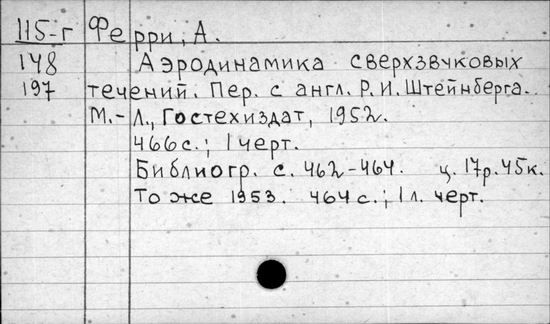 115-г Ферри, А.
148 Аэродинамика сверхзвуковых
197 течений. Пер. с англ. Р. И. Штейнберга.
М.-Л., Гостехиздат, 1952.
466 с.; 1 черт.
Библиогр. с. 462-464. ц. 17р.45к.
То же 1953. 464 с.; 1 л. черт.